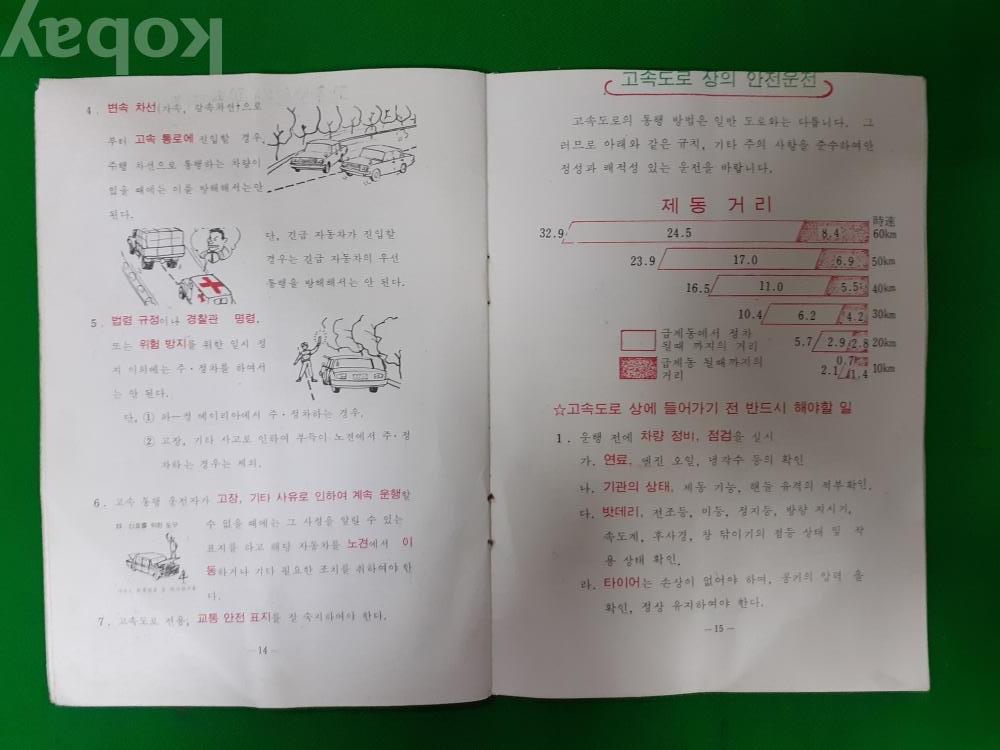 kobay
4. 변속 차선(가속, 감속차선)으로
부터 고속 통로에 진입할 경우,
주행 차선으로 통행하는 차량이
있을 때에는 이를 방해해서는안
된다.
단, 긴급 자동차가 진입할
경우는 긴급 자동차의 우선
통행을 방해해서는 안 된다.
5. 법령 규정이나 경찰관 명령,
또는 위험 방지를 위한 일시 정
지 이외에는 주·정차를 하여서
는 안 된다.
단, ① 파—킹 에이리아에서 주·정차하는 경우,
② 고장, 기타 사고로 인하여 부득이 노견에서 주·정
차하는 경우는 제외.
6. 고속 통행 운전자가 고장, 기타 사유로 인하여 계속 운행할
수 없을 때에는 그 사정을 알릴 수 있는
표지를 하고 해당 자동차를 노견에서 이
동하거나 기타 필요한 조치를 취하여야 한
다.
신호를 위한 도구
7. 고속도로 전용, 교통 안전 표지를 잘 숙지하여야 한다.
—14—
고속도로 상의 안전운전
고속도로의 통행 방법은 일반 도로와는 다릅니다. 그
러므로 아래와 같은 규칙, 기타 주의 사항을 준수하여안
정성과 쾌적성 있는 운전을 바랍니다.
제동 거리
時速
32.9 24.5 8.4 60km
23.9 17.0 6.9 50km
16.5 11.0 5.5 40km
10.4 6.2 4.2 30km
5.7 2.9 2.8 20km
2.1 0.7 1.4 10km
급제동에서 정차
될때 까지의 거리
급제동 될때까지의
거리
☆고속도로 상에 들어가기 전 반드시 해야할 일
1. 운행 전에 차량 정비, 점검을 실시
가. 연료, 엔진 오일, 냉각수 등의 확인
나. 기관의 상태, 제동 기능, 핸들 유격의 적부확인.
다. 밧데리, 전조등, 미등, 정지등, 방향 지시기,
속도계, 후사경, 창 닦이기의 점등 상태 및 작
용 상태 확인.
라. 타이어는 손상이 없어야 하며, 공기의 압력 을
확인, 정상 유지하여야 한다.
—15—